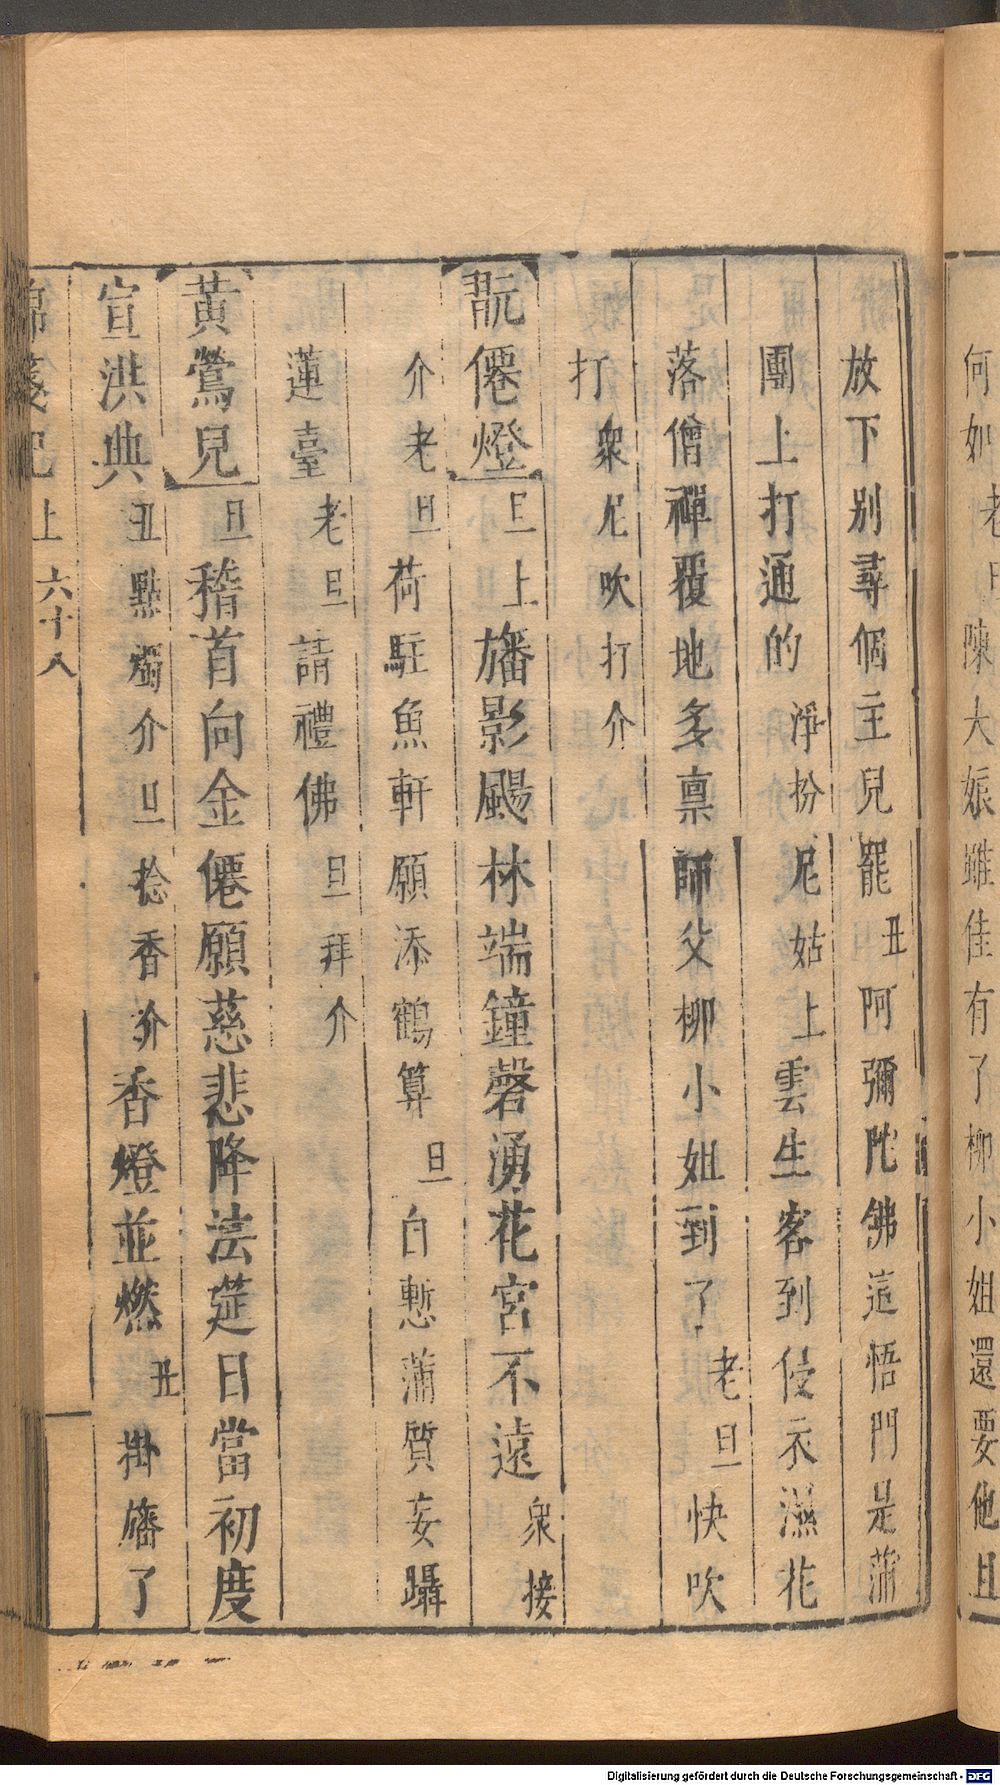 何如老旦陳大娘雖佳有了柳小姐還要他且
放下別尋個主兒罷丑阿彌陀佛這悟門是蒲
團上打通的淨扮尼姑上雲生客到侵衣濕花
落僧禪覆地多禀師父柳小姐到了老旦快吹
打衆尼吹打介
翫僊燈旦上旛影颺林端鐘磬湧花宮不遠衆接
介老旦荷駐魚軒願添鶴算旦自慙蒲質妄躡
蓮臺老旦請禮佛旦拜介
黃鶯兒旦稽首向金僊願慈悲降法筵日當初度
宣洪典丑點燭介旦捻香介香燈並燃丑掛旛了
錦箋記上六十八
Digitalisierung gefördert durch die Deutsche Forschungsgemeinschaft - DFG